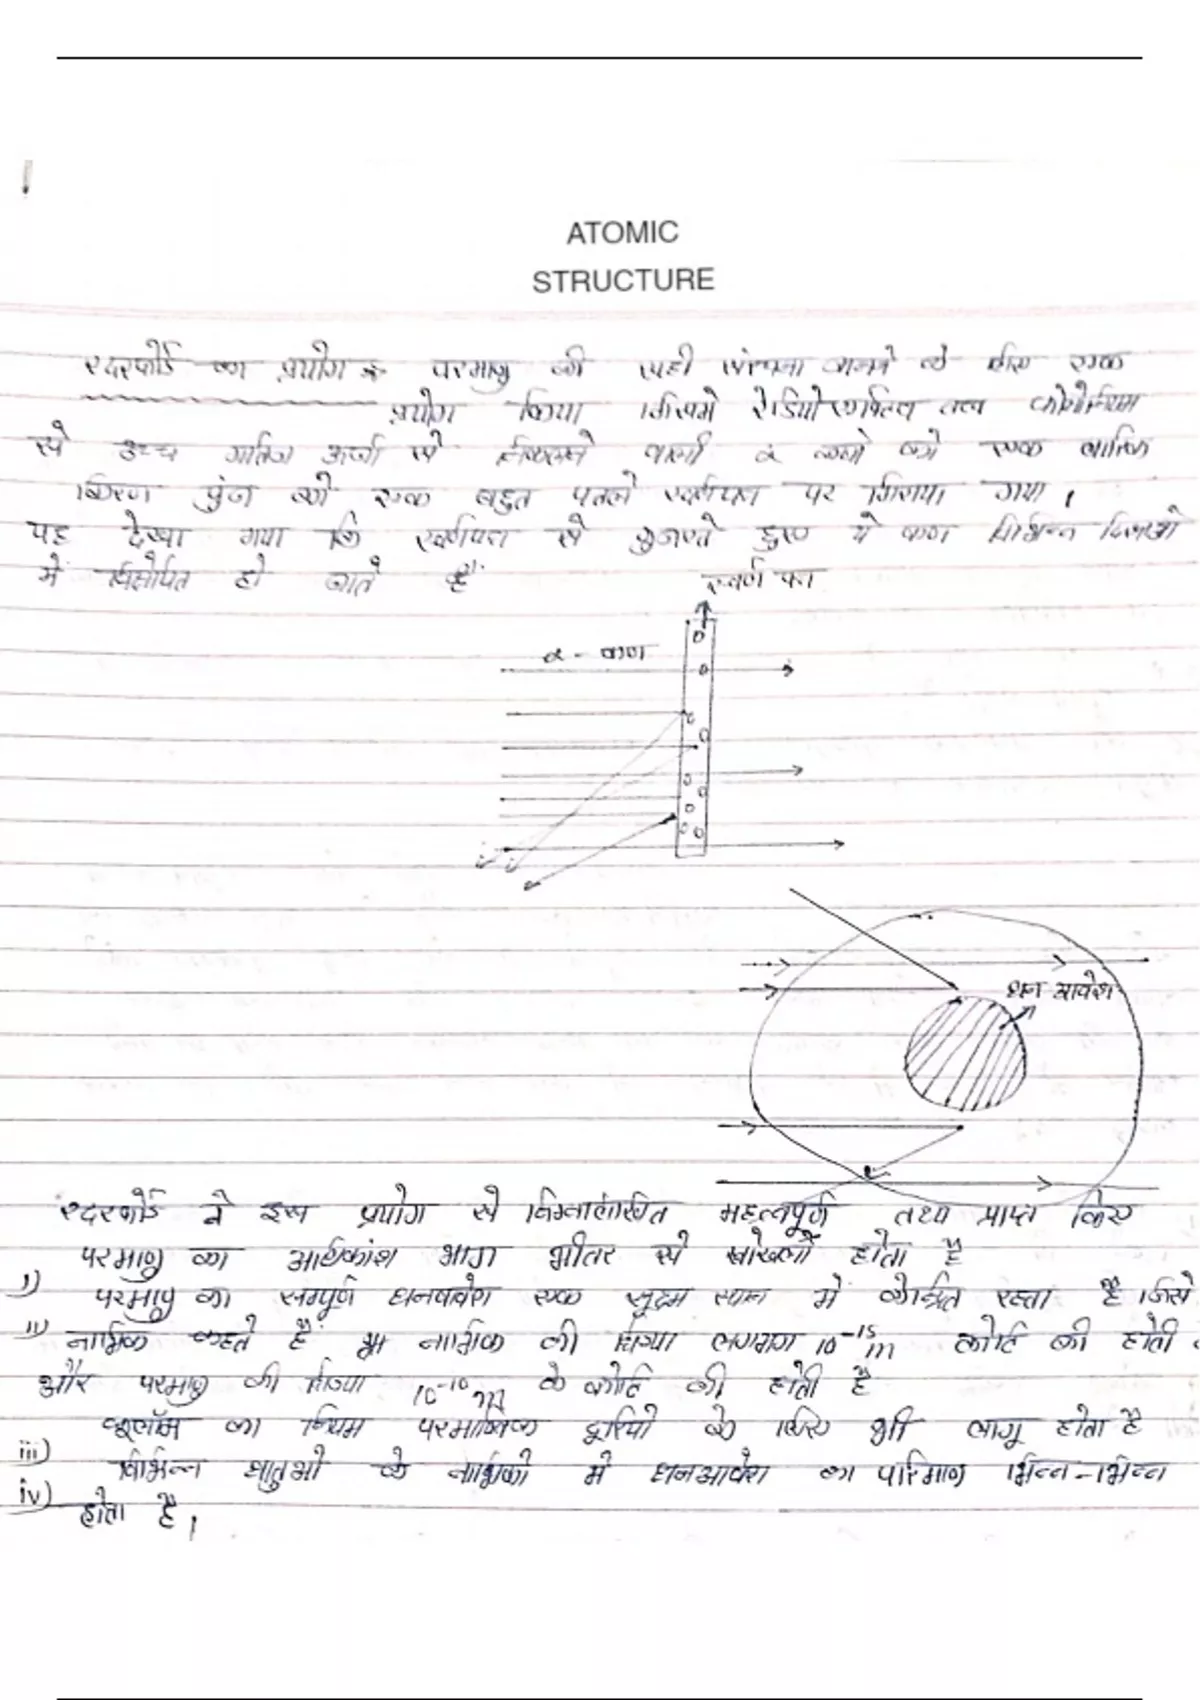 ATOMIC
STRUCTURE
रदरफोर्ड का प्रयोग परमाणु की सही संरचना जानने के लिए एक
प्रयोग किया जिसमे रेडियो एक्टिव तत्व
से उच्च गतिज ऊर्जा से निकलने वाली α कणो को एक
किरण पुंज को एक बहुत पतले स्वर्णपत्र पर गिराया गया।
यह देखा गया कि स्वर्णपत्र से गुजरते हुए ये कण विभिन्न दिशाओ
में हो जाते हैं
स्वर्ण पत्र
α - कण
धन आवेश
रदरफोर्ड ने इस प्रयोग से निम्नलिखित महत्वपूर्ण तथ्य प्राप्त किए
परमाणु का अधिकांश भाग भीतर से खोखला होता है
i) परमाणु का सम्पूर्ण एक सूक्ष्म स्थान में केन्द्रित रहता है जिसे
ii) नाभिक कहते हैं नाभिक की त्रिज्या लगभग 10⁻¹⁵ m कोटि की होती
और परमाणु की त्रिज्या 10⁻¹⁰ m के कोटि की होती है
का नियम परमाण्विक दूरियो के लिए भी लागू होता है
iii) विभिन्न धातुओ के नाभिको मे धनआवेश का परिमाण भिन्न-भिन्न
iv) होता है।